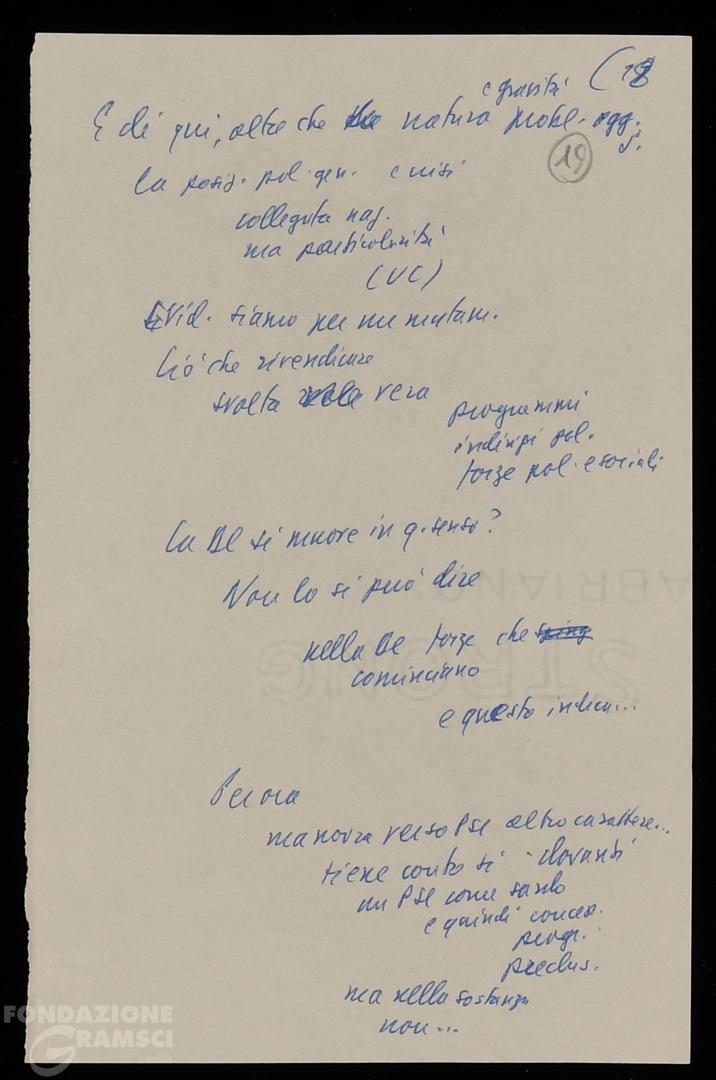 (18
e gravità
E di qui, oltre che natura probl. ogg.
19
La posiz. pol. gen. crisi
collegata naz.
ma particolarità
(VC)
Evid. siamo per un mutam.
Ciò che rivendicare
svolta vera
programmi
indirizzi pol.
forze pol. e sociali
La DC si muove in q. senso?
Non lo si può dire
nella DC forze che sping
cominciano
e questo indica...
Per ora
manovra verso PSI altro carattere...
tiene conto si davanti
un PSI come
e quindi conces.
progr.
preclus.
ma nella sostanza
non...
ABRIANO
STRONG
FONDAZIONE
GRAMSCI
onlus